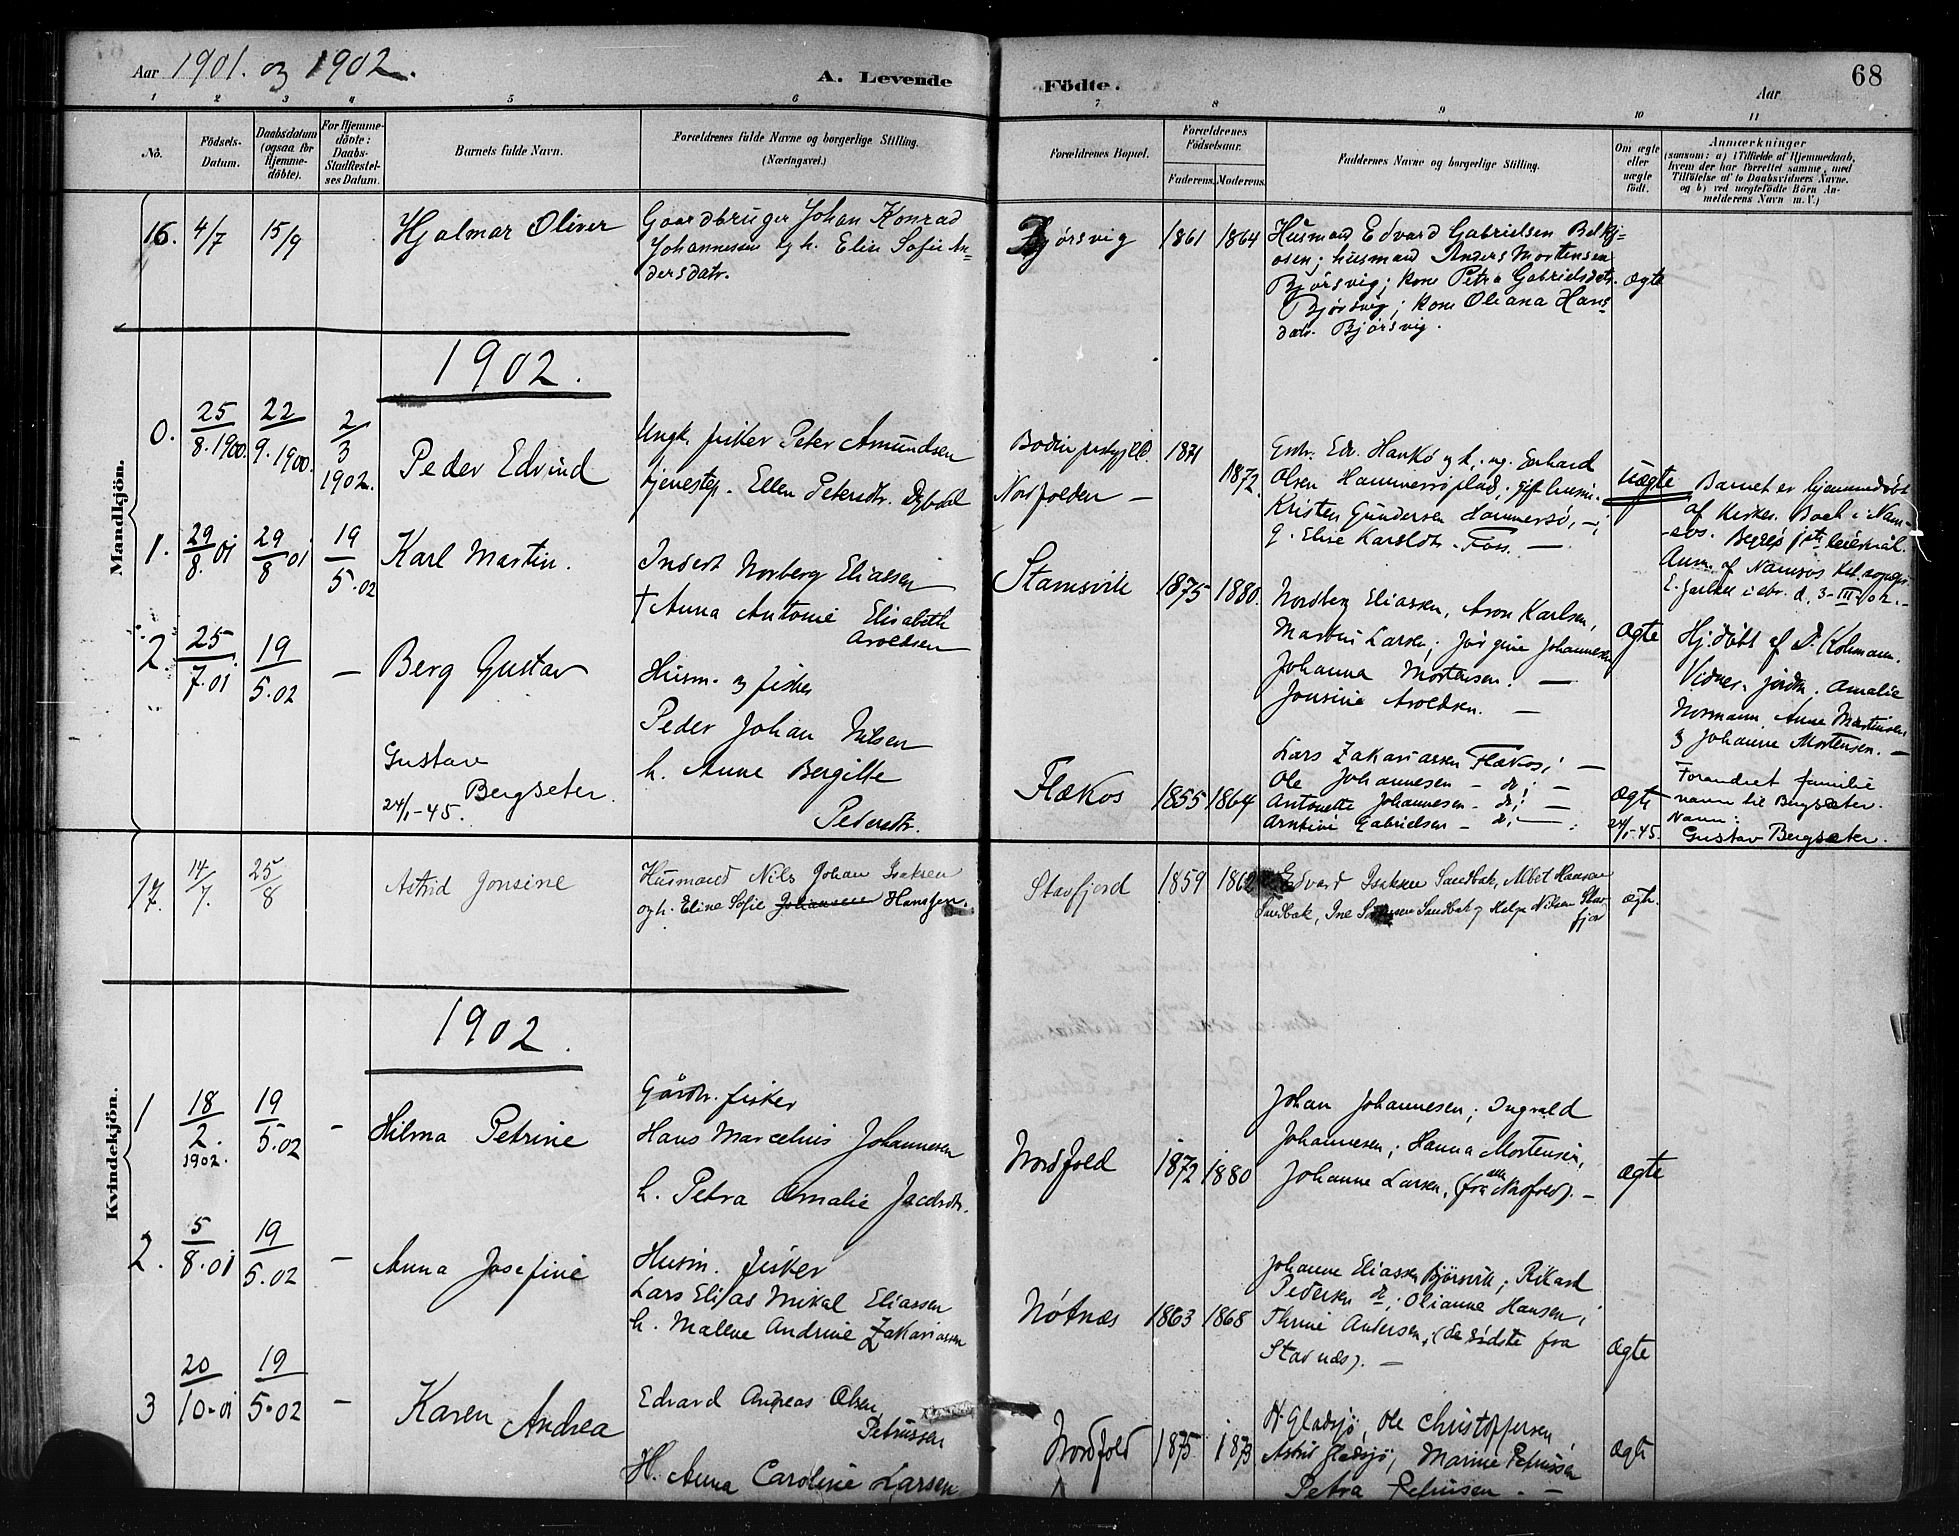 Aar 1901. og 1902.
A. Levende Födte.
Aar
68
1 2 3 4 5 6 7 8 9 10 11
No.
Födsels-Datum.
Daabsdatum (ogsaa for Hjemme-döbte).
For Hjemme-döbte: Daabs-Stadfæstel-ses Datum.
Barnets fulde Navn.
Forældrenes fulde Navne og borgerlige Stilling. (Næringsvei.)
Forældrenes Bopæl.
Forældrenes Födselsaar.
Faderens. Moderens.
Faddernes Navne og borgerlige Stilling.
Om ægte eller uægte födt.
Anmærkninger
(saasom: a) i Tilfælde af Hjemmedaab, hvem der har forrettet samme, med Tilföielse af to Daabsvidners Navne, og b) ved uægtefödte Börn An-melderens Navn m. V.)
Mandkjön.
16. 4/7 15/9
Hjalmar Oliver
Gaardbruger Johan Konrad
Johannessen og h. Elise Sofie An=
dersdatr.
Bjørsvig 1861 1864
Husmand Edvard Gabrielsen
osen; husmand Anders Mortensen
Bjørsvig; kone Petra Gabrielsdatr.
Bjørsvig; kone Oliana Hans
datr. Bjørsvig.
ægte
1902.
0. 25/8.1900. 22/9.1900. 2/3 1902.
Peder Edvind
Ungk. fisker Peter Amundsen
tjenestep. Ellen Petersdtr. Dybdal
1871
Nordfolden — 1872.
Olsen
Kristen Gundersen Hammersø, —;
uægte
Barnet er hjemmedøbt
1. 29/8.01 29/8 01 19/5.02
Karl Martin.
Inderst Norberg Eliassen
† Anna Antonie Elisabeth
Aroldsen
Stamsvik 1875 1880.
Nordberg Eliassen, Aron Karlsen,
Markus Larsen; Jørgine Johannesen
Johanna Mortensen. —
Jonsine Aroldsen. —
ægte
Hj. døbt af
Amalie
Normann, Anne Martinsen
& Johanne Mortensen. —
2. 25/7.01 19/5.02 —
Berg Gustav
Gustav
Bergseter.
24/1-45.
Husm. og fisker
Peder Johan Nilsen
h. Anne Bergitte
Pedersdtr.
Flækos 1855 1864
Lars Zakariassen Flækos; —
Ole Johannesen — do; —
Antonette Johannesen — do; —
Gabrielsen — do; — :
ægte
24/1-45.
Forandret familie
navn til Bergsæter.
Navn:
Gustav Bergsæter.
17. 14/7. 25/8
Astrid Jonsine
Husmand Nils Johan Isaksen
og h. Eline Sofie Johansen Hanssen.
Stavfjord 1859 1862
Edvard Isaksen Sandbak, Albet Hansen
Sandbak, Ine Sandbak og Helga Nilsen Stav-
fjor
ægte.
1902.
Kvindekjön.
1 18/2. 1902. 19/5.02 —
Hilma Petrine
Gårdbr. fisker
Hans Marcelius Johannesen
h. Petra Amalie Jacobsdtr.
Nordfold 1872 1880
Johan Johannesen; Ingvald
Johannesen; Hanna Mortensen,
Johanne Larsen, (alle fra Nordfold). —
ægte
2. 5/8.01 19/5.02 —
Anna Josefine
Husm. fisker
Lars Elias Mikal Eliassen
h. Malene Andrine Zakariassen
Nøtnæs 1863 1868
Johanne Eliassen Bjørsvik; Rikard
Pedersen do; Olianne Hansen;
Thrine Andersen, (de sidste fra
Stavnæs). —
ægte
3 20/10.01 19/5.02 —
Karen Andrea
Edvard Andreas Olsen
Petrussen
H. Anna Caroline Larsen
Nordfold 1875 1873
H. Gladsjø, Ole Christoffersen,
Astrid Gladsjø, Marine Petrussen
Petra Petrusen. —
ægte